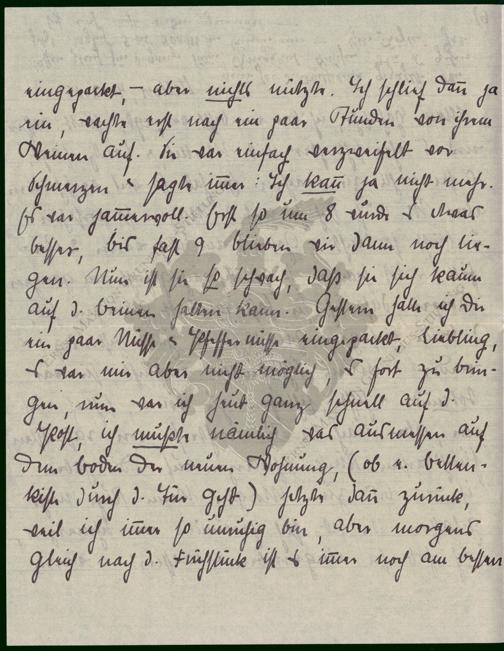 eingepackt, – aber nichts nützte. Ich schlief dañ ja
ein, wachte erst nach ein paar Stunden von ihrem
Weinen auf. Sie war einfach verzweifelt vor
Schmerzen u sagte im̃er: Ich kañ ja nicht mehr.
Es war jam̃ervoll. Erst so um 8 wurde es etwas
besser, bis fast 9 blieben wir dann noch lie-
gen. Nun ist sie so schwach, daß sie sich kaum
auf d. beinen halten kann. Gestern hatte ich dir
ein paar Nüsse u Pfeffernüsse eingepackt, Liebling,
es war mir aber nicht möglich, es fort zu brin-
gen, nun war ich heut ganz schnell auf d.
Post, ich mußte nämlich was ausmessen auf
dem boden der neuen Wohnung, (ob e. betten-
kiste durch d. Tür geht) hetzte dañ zurück,
weil ich im̃er so unruhig bin, aber morgens
gleich nach d. Frühstück ist es im̃er noch am besten